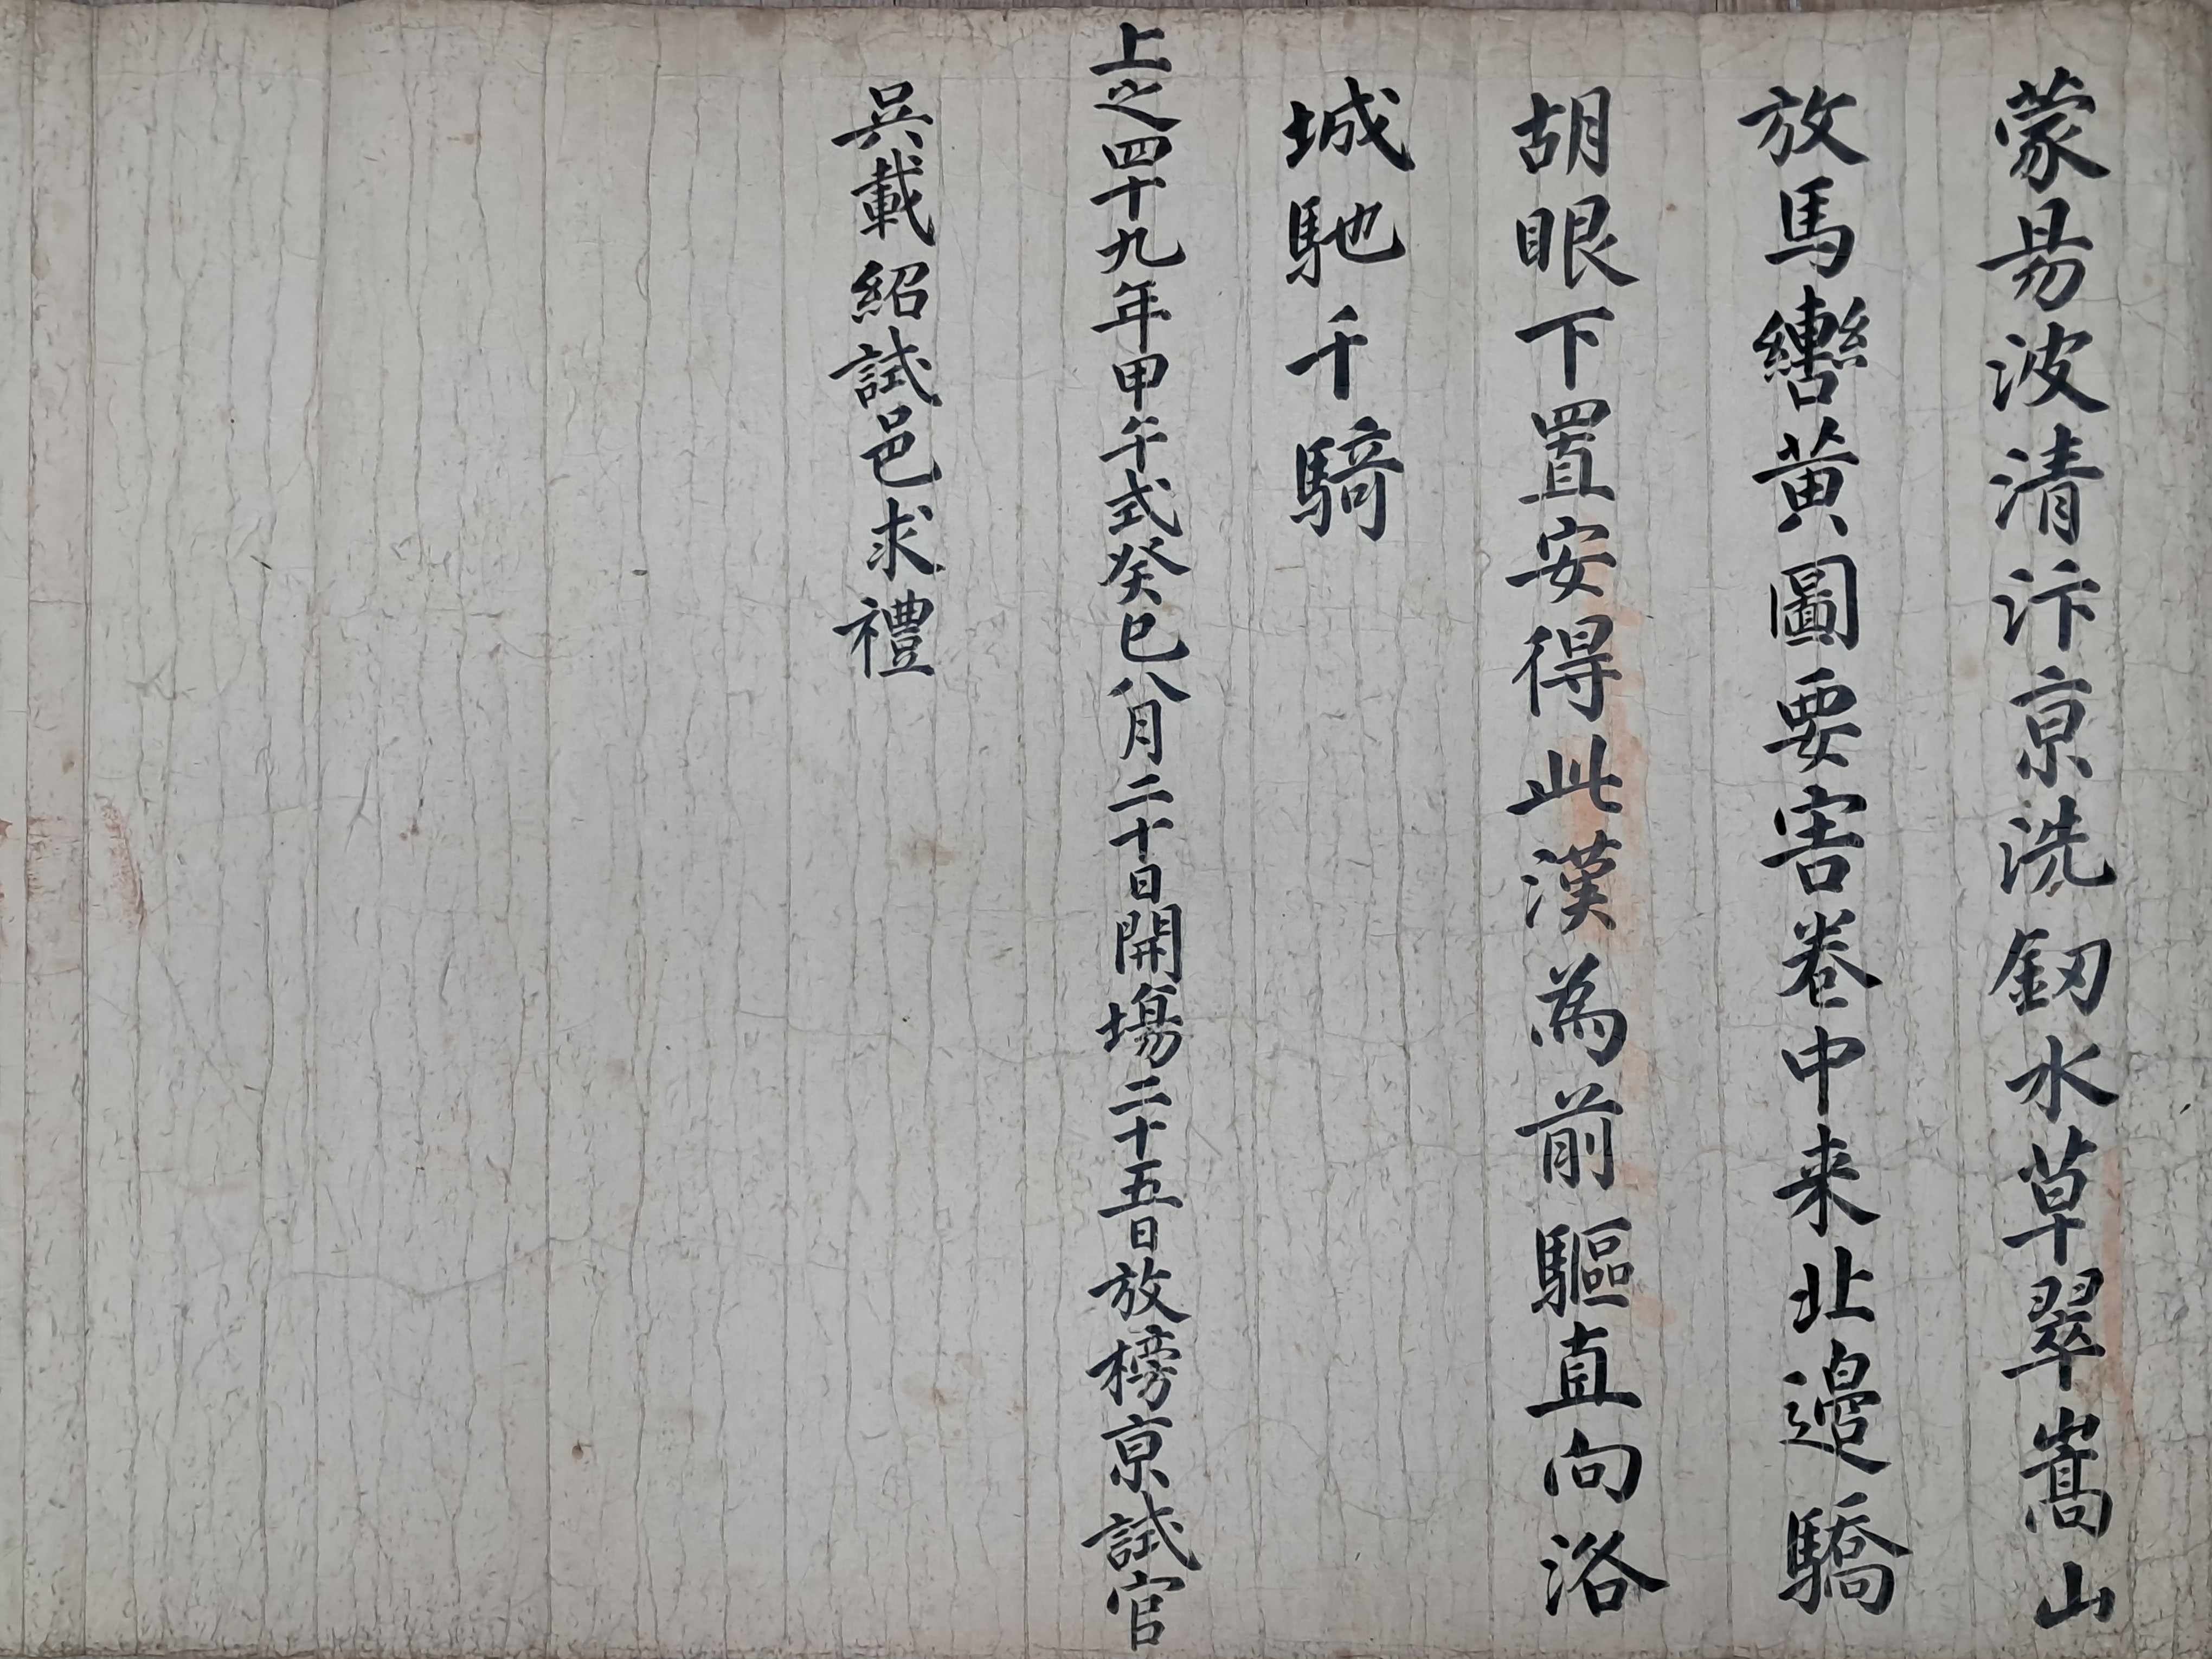 蒙昜波清汴京洗釼水草翠嵩山
放馬轡黃圖要害卷中来北邊驕
胡眼下置安得此漢為前驅直向洛
城馳千騎
上之四十九年甲午式癸巳八月二十日開塲二十五日放榜京試官
吳載紹試邑求禮